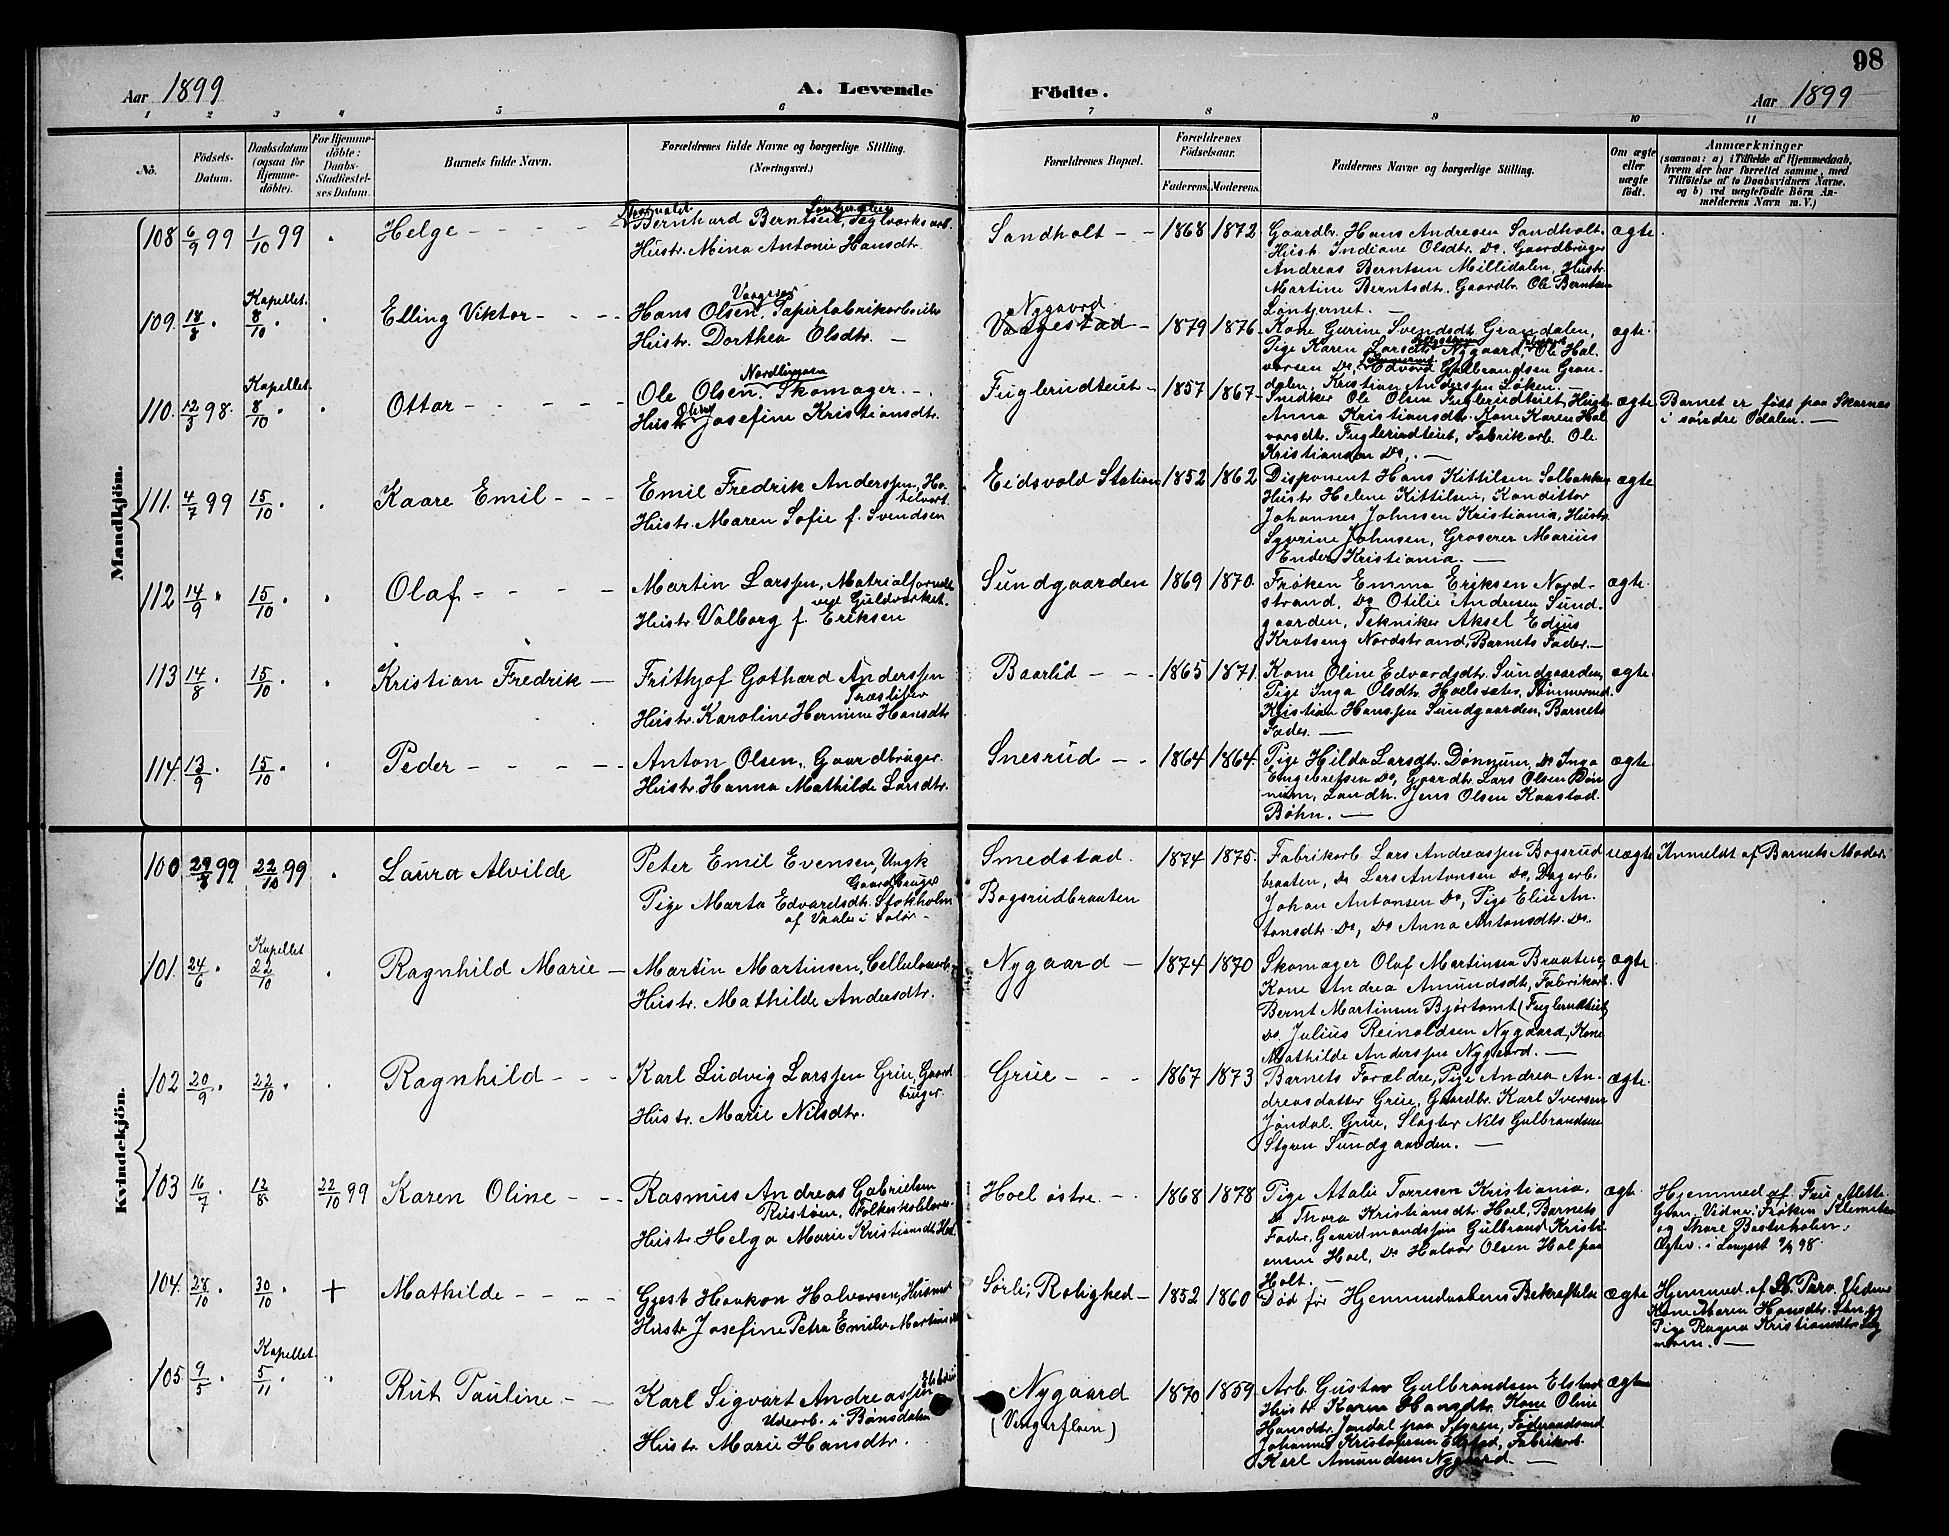 98
Aar 1899
A. Levende Födte.
Aar 1899
1 2 3 4 5 6 7 8 9 10 11
No.
Födsels-Datum.
Daabsdatum (ogsaa for Hjemmedöbte).
For Hjemmedöbte: Daabs-Stadfæstelses Datum.
Barnets fulde Navn.
Forældrenes fulde Navne og borgerlige Stilling.
(Næringsvei.)
Forældrenes Bopæl.
Forældrenes Födselsaar.
Faderens. Moderens.
Faddernes Navne og borgerlige Stilling.
Om ægte eller uægte født.
Anmærkninger
(saasom: a) i Tilfælde af Hjemmedaab, hvem der har forrettet samme, med Tilföielse af to Daabsvidners Navne, og b) ved uægtefödte Börn Anmelderens Navn m. V.)
Mandkjön.
108 6/9 99 1/10 99 Helge
Bernhard Berntsen, Teglværksarb.
Hustr. Mina Antonie Hansdtr.
Sandholt 1868 1872
Gaardbr. Hans Andresen Sandholt,
Hustr. Indiane Olsdtr. Do. Gaardbruger
Andreas Berntsen Millidalen, Hustr.
Martine Berntsdtr. Gaardbr. Ole Berntsen
Løntjernet.
ægte
109. 18/8 Kapellet. 8/10 Elling Viktor
Hans Olsen, Papirfabrikarbeider
Hustr. Dorthea Olsdtr.
Nygaard
Vaagestad 1879 1876
Kone Gurine Svendsdt. Grandalen,
Pige Karen Larsdtr. Nygaard, Ole Hal-
vorsen Do, Edvard Gulbrandsen Gran-
dalen, Kristian Anderssen Løken.
ægte
110. 12/3 98. Kapellet. 8/10 Ottar
Nordlignen
Ole Olsen, Skomager.
Hustr. Oline Josefine Kristiansdtr.
Fuglerudteiet 1857 1867
Snedker Ole Olsen Fuglerudteiet, Hustr.
Anna Kristiansdtr. Kone Karen Hal-
vorsdtr. Fuglerudteiet, Fabrikarb. Ole
Kristiansen Do.
ægte
Barnet er født paa Skarnes
i søndre Odalen.
111. 4/7 99 15/10 Kaare Emil
Emil Fredrik Anderssen, Ho-
telvært
Hustr. Maren Sofie f. Svendsen
Eidsvold Station 1852 1862
Disponent Hans Kittilsen Solbakken
Hustr. Helene Kittilsen, Konditor
Johannes Johnsen Kristiania, Hustr.
Syverine Johnsen, Groserer Marius
Ender Kristiania.
ægte
112 14/9 15/10 Olaf
Martin Larssen, Matrialforvalt.
ved Guldværket.
Hustr. Valborg f. Eriksen
Sundgaarden 1869 1870
Frøken Emma Eriksen Nord-
strand, Do Otilie Andresen Sund-
gaarden, Tekniker Aksel Edius
Kratseng Nordstrand, Barnets Fader.
ægte
113 14/8 15/10 Kristian Fredrik
Frithjof Gothard Anderssen
Træsliper
Hustr. Karoline Hermine Hansdtr
Baarlid 1865 1871
Kone Oline Edvardsdt. Sundgaarden,
Pige Inga Olsdtr. Hoelssæter, Tømmermd.
Kristian Hanssen Sundgaarden, Barnets
Fader.
ægte
114 13/9 15/10 Peder
Anton Olsen, Gaardbruger.
Hustr. Hanna Mathilde Larsdtr.
Snesrud 1864 1864
Pige Hilda Larsdtr. Dønnum, Do Inga
Engebretsen Do, Gaardbr. Lars Olsen Døn-
num, Landh. Jens Olsen Kaastad.
Bøhn.
ægte
Kvindekjön.
100 22/10 99 Laura Alvilde
Peter Emil Evensen, Ungk
Gaardbruger
Pige Marta Edvardsdt. Stokholm
af Vaaler i Solør
Smedstad.
Bogsrudbraaten
1874 1875
Fabrikarb. Lars Andreassen Bogsrud-
braaten, Do Lars Antonsen Do, Dagarb.
Johan Antonsen Do, Pige Elise An-
tonsdtr. Do, Do Anna Antonsdtr. Do.
uægte
Anmeldt af Barnets Moder.
101. 24/6 Kapellet 22/10 Ragnhild Marie
Martin Martinsen, Cellulosearb.
Hustr. Mathilde Andersdtr.
Nygaard 1874 1870
Skomager Olaf Martinsen Braaten,
Kone Andrea Amundsdt, Fabrikarb.
Bernt Martinsen Bjørtomt (Fuglerudteiet)
Do. Julius Reinoldsen Nygaard, Kone
Mathilde Anderssen Nygaard.
ægte
102 20/9 22/10 Ragnhild
Karl Ludvig Larssen Grue, Gaard-
bruger.
Hustr. Marie Nilsdtr.
Grue 1867 1873
Barnets Forældre, Pige Andrea An-
dreasdatter Grue, Gaardbr. Karl Iversen
Jøndal, Grue, Slagter Nils Gulbrandsen
Styren Sundgaarden.
ægte
103 16/7 12/8 22/10 99 Karen Oline
Rasmus Andreas Gabrielsen
Rustøen, Folkeskolelærer
Hustr. Helga Marie Kristiansdt. Hoel
Hoel østre 1868 1878
Pige Atalie Torresen Kristiania,
Do Thora Kristiansdt. Hoel, Barnets
Fader, Gaardmandssøn Gulbrand Kristi-
ensen Hoel, Do Halvor Olsen Hol paa
Holt.
ægte
Hjemmed. af Fru Alette
Gran. Vidner: Frøken Klemetsen
og Thore Basterholen.
104. 28/10 30/10 + Mathilde
Gjest Haakon Halvorsen, Husmd
Hustr. Josefine Petra Emilie Martinsdt
Sørli, Rolighed 1852 1860
Død før Hjemmedaabens Bekræftelse
ægte
Hjemmed. af Vidner
Kone Maren Hansdtr. Stn, og
Pige Ragna Kristiansdtr.
105 9/5 Kapellet. 5/11 Rut Pauline
Karl Sigvart Andreassen
Udearb. i Bønsdalen
Hustr. Marie Hansdtr.
Nygaard
(Vengerfloen)
1870 1859
Arb. Gustav Gulbrandsen Elstad
Hustr. Karen Hansdtr. Kone Oline
Hansdtr. Jøndal paa Styren, Føderaadsmd
Johannes Kristofersen Elstad, Fabrikarb.
Karl Amundsen Nygaard.
ægte